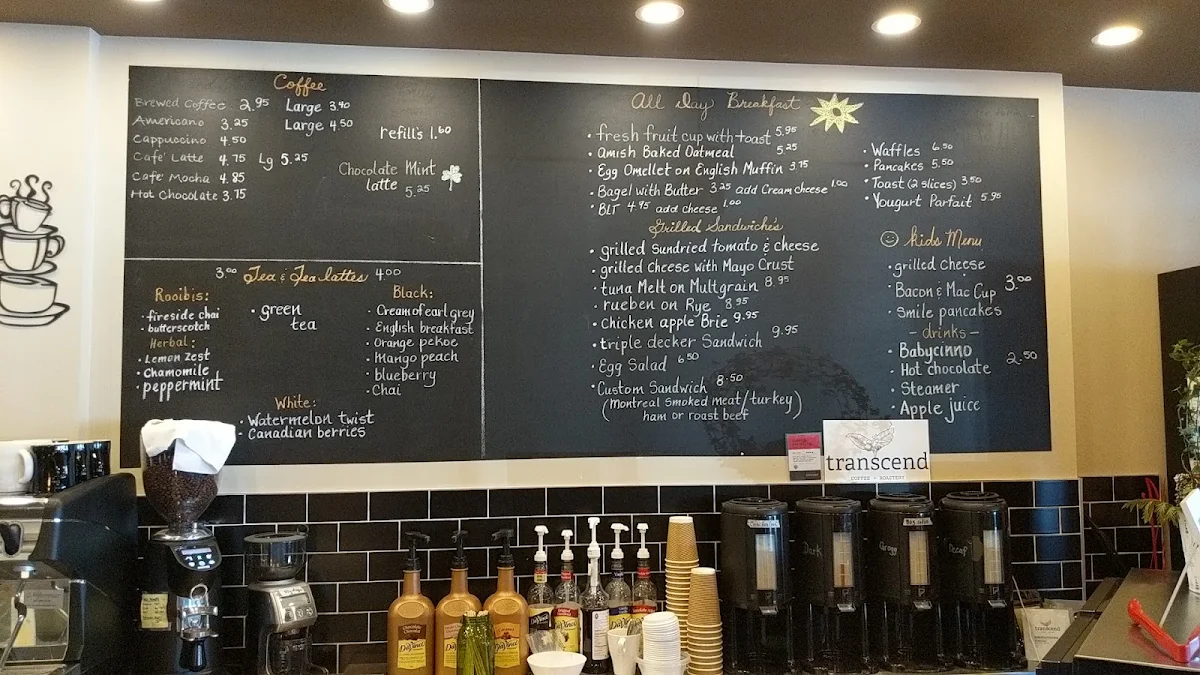 Coffee
Brewed Coffee 2.95 Large 3.40
Americano 3.25 Large 4.50
Cappuccino 4.50
Cafe' Latte 4.75 Lg 5.25
Cafe Mocha 4.85
Hot Chocolate 3.75
refill's 1.60
Chocolate Mint
latte 5.25
3.00 Tea & Tea lattes 4.00
Rooibis:
• fireside chai
• butterscotch
Herbal:
• Lemon Zest
• Chamomile
• peppermint
• green
tea
Black:
• Cream of earl grey
• English breakfast
• Orange pekoe
• Mango peach
• blueberry
• Chai
White:
• Watermelon twist
• Canadian berries
All Day Breakfast
• fresh fruit cup with toast 5.95
• Amish Baked Oatmeal 5.25
• Egg Omellet on English Muffin 3.75
• Bagel with Butter 3.25 add Cream cheese 1.00
• BLT 4.95 add cheese 1.00
• Waffles 6.50
• Pancakes 5.50
• Toast (2 slices) 3.50
• Yougurt Parfait 5.95
Grilled Sandwiche's
• grilled Sundried tomato & cheese
• grilled cheese with Mayo Crust
• tuna Melt on Multgrain 8.95
• rueben on Rye 8.95
• Chicken apple Brie 9.95
• triple decker Sandwich 9.95
• Egg Salad 6.50
• Custom Sandwich 8.50
(Montreal smoked meat/turkey)
ham or roast beef
kids Menu
• grilled cheese
• Bacon & Mac Cup 3.00
• Smile pancakes
- drinks -
• Babycinno
• Hot chocolate 2.50
• Steamer
• Apple juice
transcend
COFFEE + ROASTERY
Dark
Decaf
DaVinci
DaVinci
DaVinci
transcend